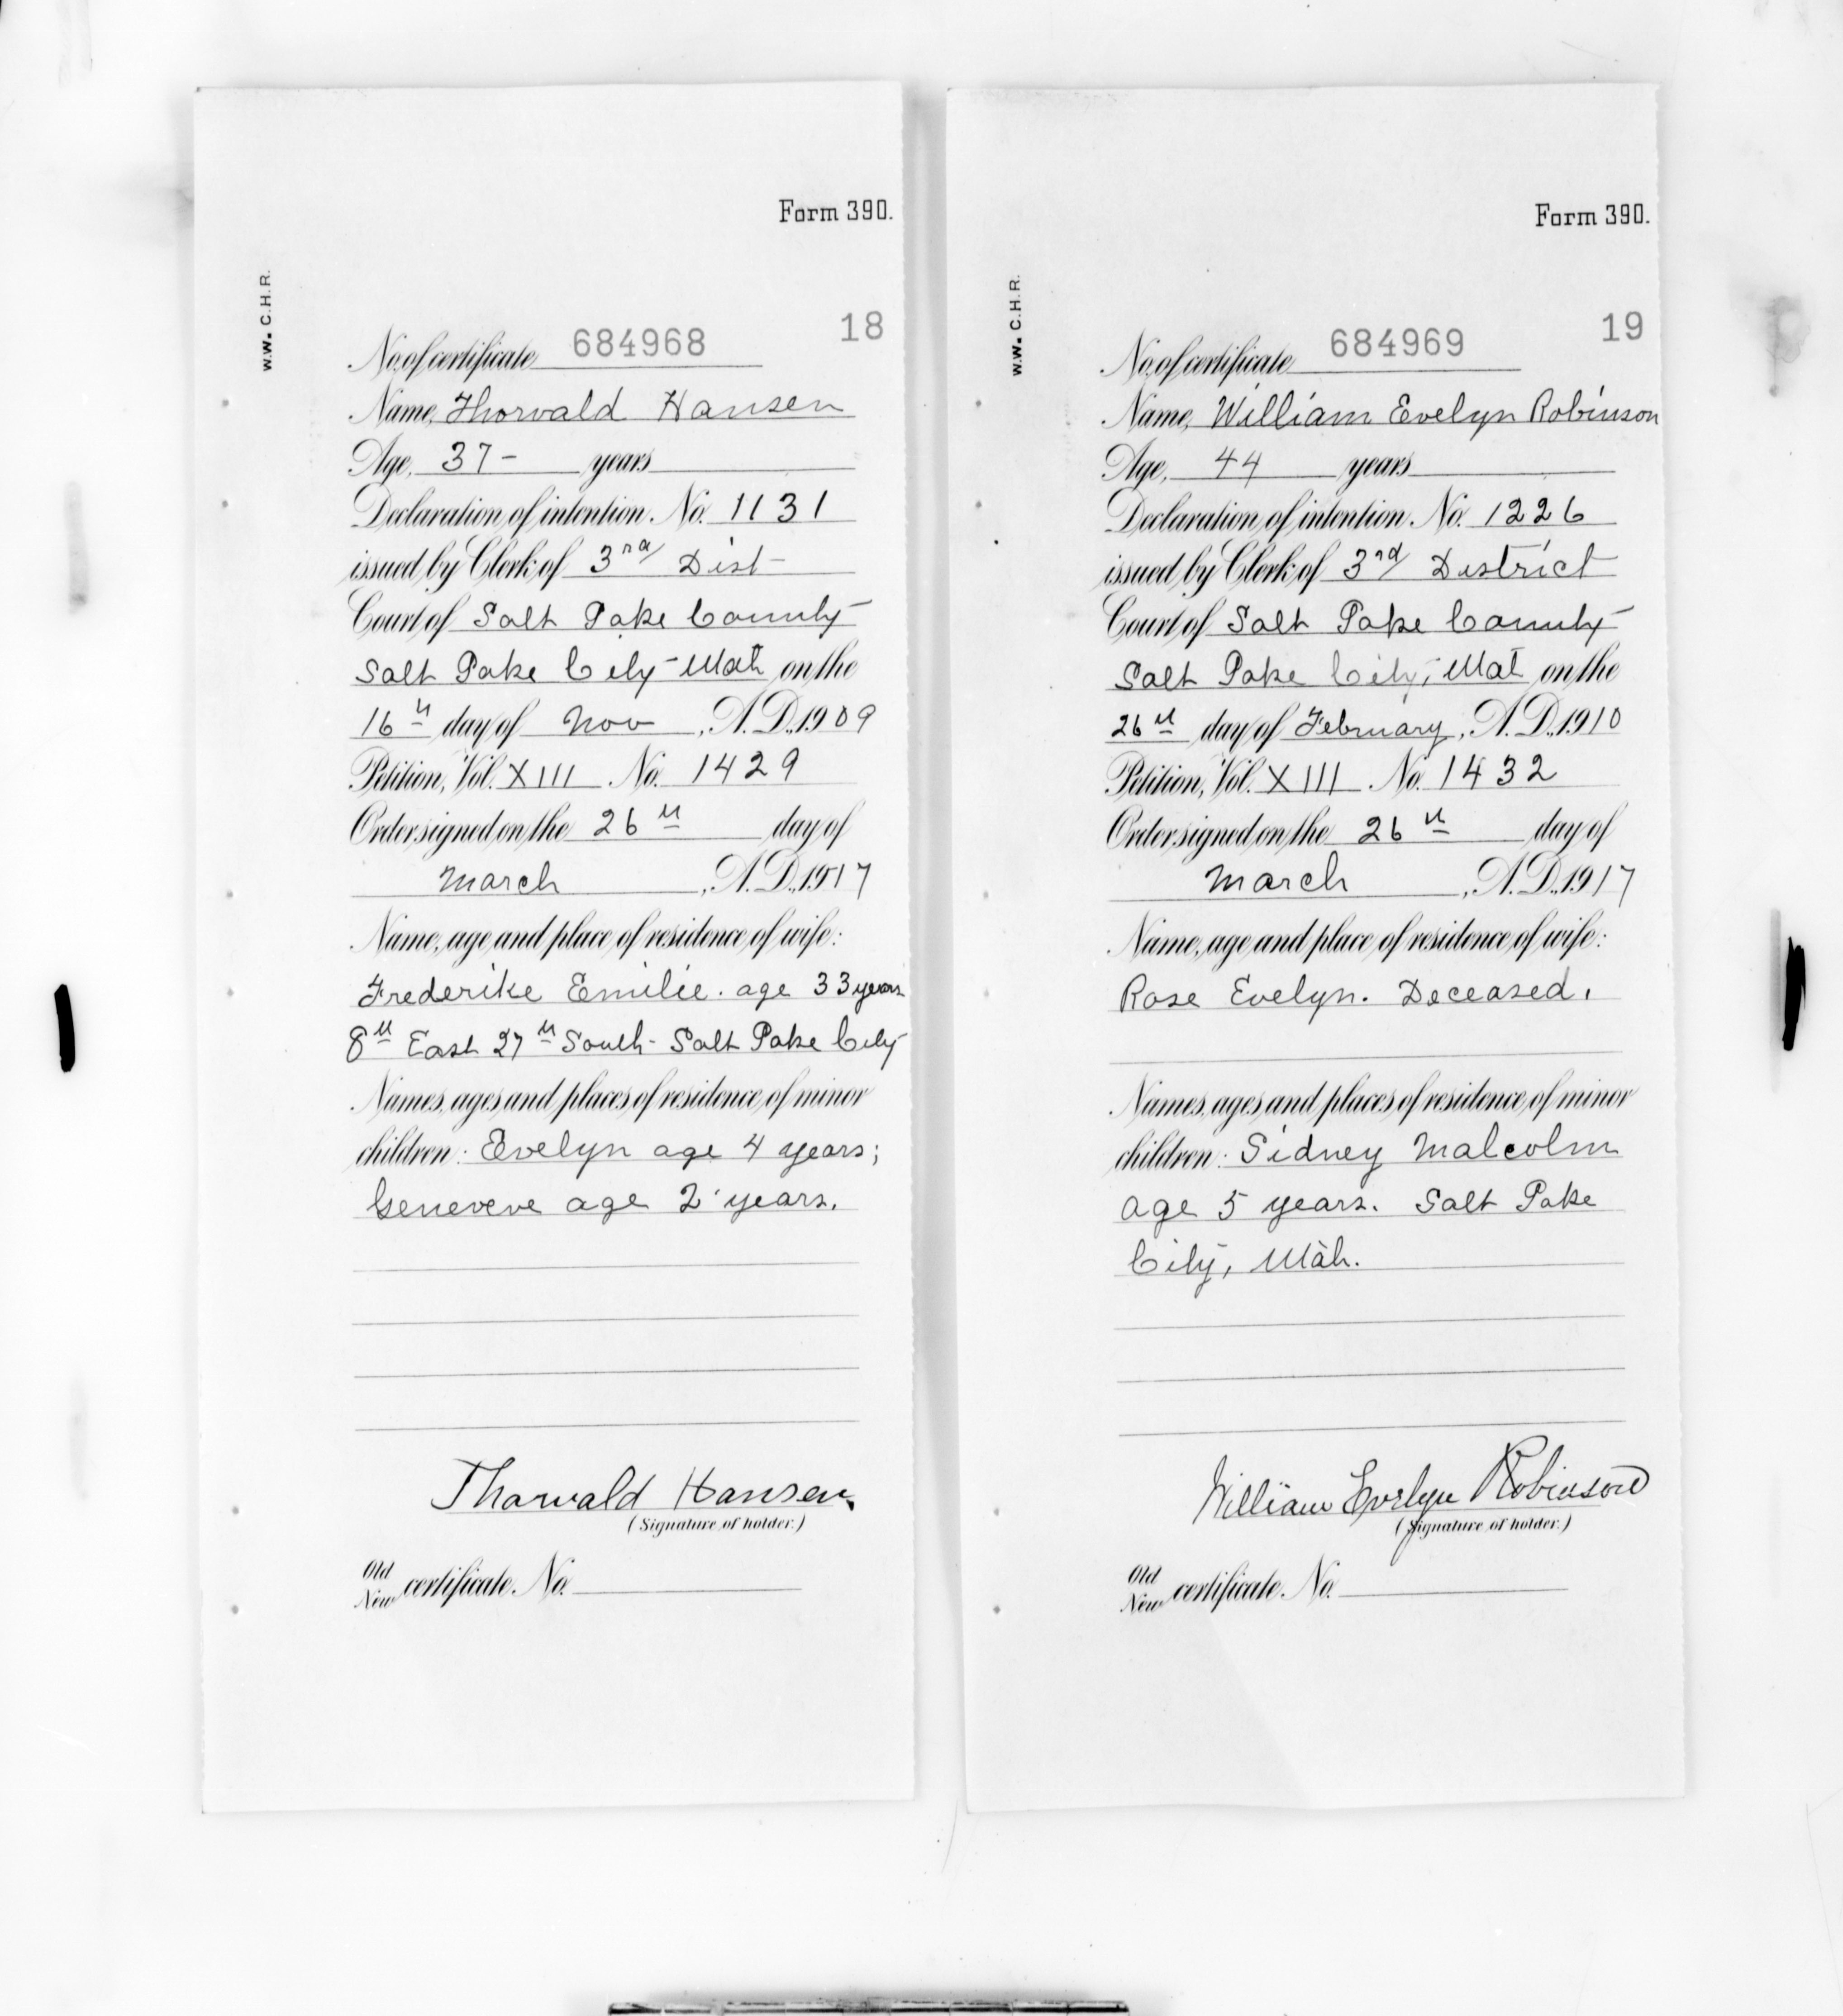 Form 390.
W.W. C.H.R.
18
No. of certificate 684968
Name, Thorvald Hansen
Age, 37- years
Declaration of intention No. 1131
issued by Clerk of 3rd Dist
Court of Salt Lake County
Salt Lake City Utah on the
16th day of Nov, A.D. 1909
Petition, Vol. XIII No. 1429
Order signed on the 26th day of
March, A.D. 1917
Name, age and place of residence of wife:
Frederike Emilie. age 33 years
8th East 27th South - Salt Lake City
Names, ages and places of residence of minor
children: Evelyn age 4 years;
Geneveve age 2 years.
Thorvald Hansen
(Signature of holder.)
Old
New certificate No.
Form 390.
W.W. C.H.R.
19
No. of certificate 684969
Name, William Evelyn Robinson
Age, 44 years
Declaration of intention No. 1226
issued by Clerk of 3rd District
Court of Salt Lake County
Salt Lake City, Utah on the
26th day of February, A.D. 1910
Petition, Vol. XIII No. 1432
Order signed on the 26th day of
March, A.D. 1917
Name, age and place of residence of wife:
Rose Evelyn. Deceased.
Names, ages and places of residence of minor
children: Sidney Malcolm
age 5 years. Salt Lake
City, Utah.
William Evelyn Robinson
(Signature of holder.)
Old
New certificate No.